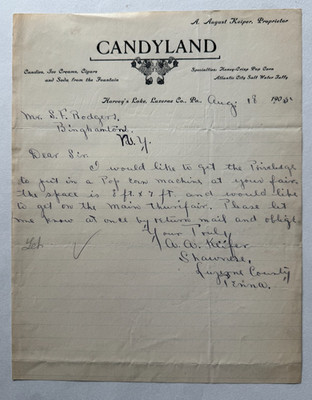 A. August Keifer, Proprietor
CANDYLAND
Candies, Ice Creams, Cigars
and Soda from the Fountain
Specialties: Honey-Crisp Pop Corn
Atlantic City Salt Water Taffy
Harvey's Lake, Luzerne Co., Pa.
Aug 18 190
Mr. S. P. Rodgers,
Binghamton
N. Y.
Dear Sir
I would like to get the Privilege
to put in a Pop corn machine at your fair,
the space is 8 ft. x 7 ft. and would like
to get on the main thurifair. Please let
me know at once by return mail and oblige
Your Truly
A. A. Keifer
Shawnese,
Luzerne County
Penna.